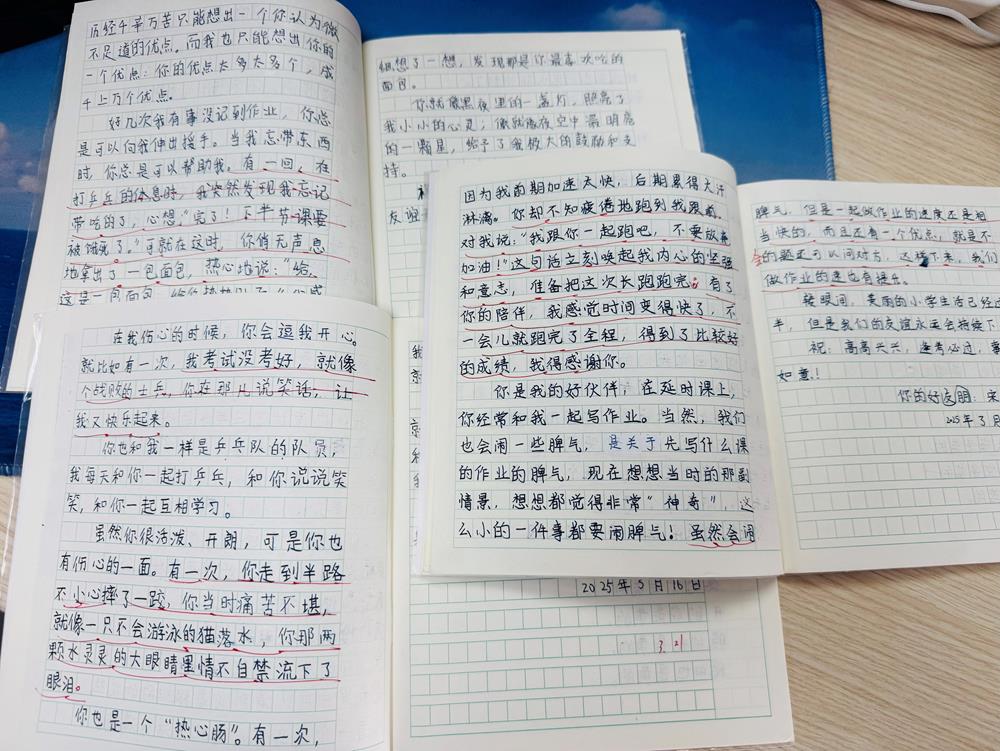 历经千辛万苦只能想出一个你认为微
不足道的优点。而我也只能想出你的
一个优点：你的优点太多太多个，成
千上万个优点。
好几次我有事没记到作业，你总
是可以向我伸出援手。当我忘带东西
时，你总是可以帮助我。有一回，在
打乒乓的休息时，我突然发现我忘记
带吃的了，心想“完了！下半节课要
被饿死了。”可就在这时，你悄无声息
地拿出了一包面包，热心地说：“给，
这是一包面包
细想了一想，发现那是你最喜欢吃的
面包。
你就像黑夜里的一盏灯，照亮了
我小小的心灵；像就像夜空中最明亮
的一颗星，给予了我极大的鼓励和支
持。
友谊
在我伤心的时候，你会逗我开心。
就比如有一次，我考试没考好，就像
个战败的士兵，你在那儿说笑话，让
我又快乐起来。
你也和我一样是乒乓队的队员，
我每天和你一起打乒乓，和你说说笑
笑，和你一起互相学习。
虽然你很活泼、开朗，可是你也
有伤心的一面。有一次，你走到半路
不小心摔了一跤，你当时痛苦不堪，
就像一只不会游泳的猫落水，你那两
颗水灵灵的大眼睛里情不自禁流下了
眼泪。
你也是一个“热心肠”。有一次，
2025年3月16日
3.21
因为我前期加速太快，后期累得大汗
淋漓。你却不知疲倦地跑到我跟前，
对我说：“我跟你一起跑吧，不要放弃
加油！”这句话立刻唤起我内心的坚强
和意志，准备把这次长跑跑完。有了
你的陪伴，我感觉时间变得快了，不
一会儿就跑完了全程，得到了比较好
的成绩，我得感谢你。
你是我的好伙伴，在延时课上，
你经常和我一起写作业。当然，我们
也会闹一些脾气，是关于先写什么课
的作业的脾气，现在想想当时的那副
情景，想想都觉得非常“神奇”，这
么小的一件事都要闹脾气！虽然会闹
脾气，但是一起做作业的速度还是相
当快的，而且还有一个优点，就是不
会的题还可以问对方，这样下来，我们
做作业的速度也有提乐。
转眼间，美丽的小学生活已经过
半，但是我们的友谊永远会持续下
祝：高高兴兴，逢考必过，
如意！
你的好朋友：宋
2025年3月